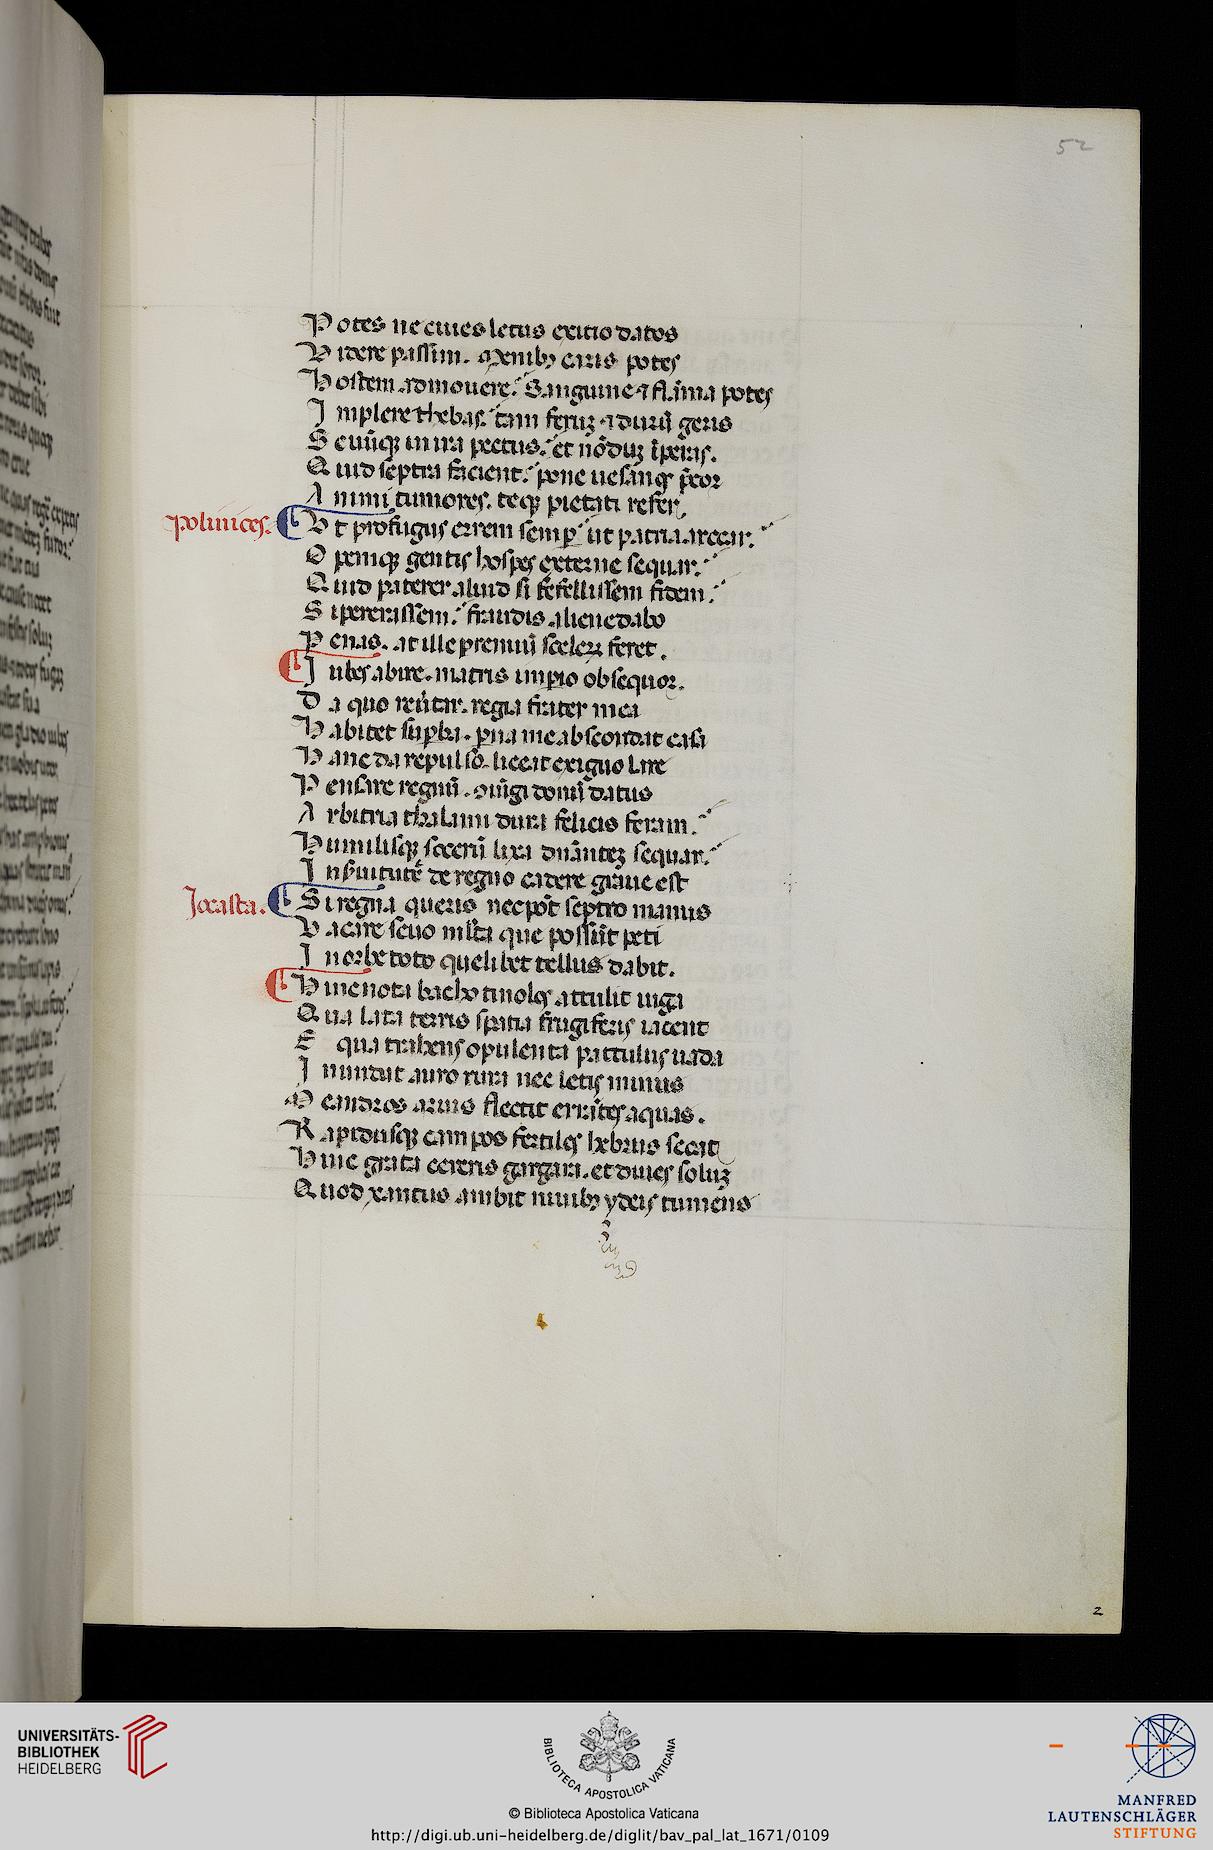 52
Potes ne ciues letus exitio datos
Videre passim. menibꝫ caris potes
Hostem admouere. Sanguine ⁊ flāma potes
Implere thebas. tam feruꝫ ⁊ durū geris
Seuūqꝫ in ira pectus. et nōduꝫ īperas.
Quid septra facient. pone uesanos p̄cor
Animi tumores. teqꝫ pietati refer
Polinices. Vt profugus errem semꝑ ut patria arcear.
Opemqꝫ gentis hospes externe sequar.
Quid paterer aliud si fefellissem fidem.
Si peierassem. fraudis aliene dabo
Penas. at ille premiū sceleꝝ feret.
Iubes abire. matris imꝑio obsequor.
Da quo reūtar. regia frater mea
Habitet suꝑba. ꝑua me abscondat casa
Hanc da repulso. liceat exiguo lare
Pensare regnū. ꝯiūgi donū datus
Arbitria thalami dura felicis feram.
Humilisqꝫ socerū lixa dn̄anteꝫ sequar.
In ẜuitutē de regno cadere graue est
Jocasta. Si regna queris nec pōt septro manus
Vacare seuo ml̄ta que possūt peti
In orbe toto quelibet tellus dabit.
Hinc nota bacho tmolos attulit iuga
Qua lata terris spatia frugiferis iacent
E qua trahens opulenta pattulus uada
Inundat auro rura nec letis minus
Meandros aruis flectit errātes aquas.
Rapidusqꝫ campos fertiles hebrus secat
Hinc grata cereris gargara. et diues soluꝫ
Quod xantus ambit niuibꝫ ydeis tumens
2
UNIVERSITÄTS-
BIBLIOTHEK
HEIDELBERG
BIBLIOTECA APOSTOLICA VATICANA
© Biblioteca Apostolica Vaticana
http://digi.ub.uni-heidelberg.de/diglit/bav_pal_lat_1671/0109
MANFRED
LAUTENSCHLÄGER
STIFTUNG